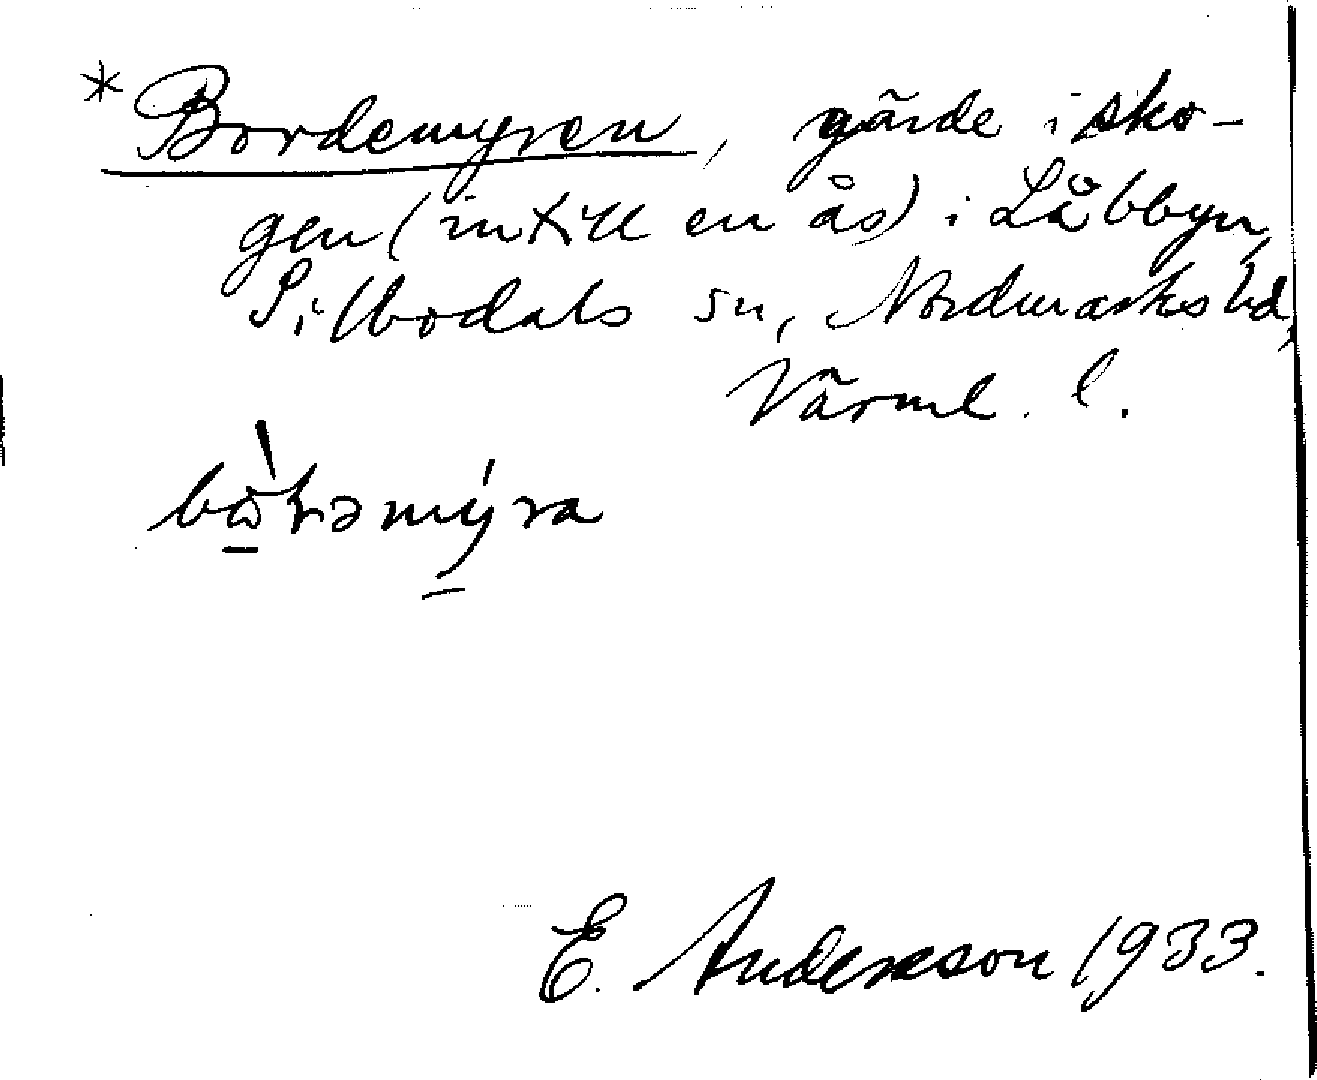 * Bordemyren, gärde i sko-
gen (intill en ås) i Låbbyn,
Silbodals sn, Nordmarks hd,
Värml. l.
E. Andersson 1933.